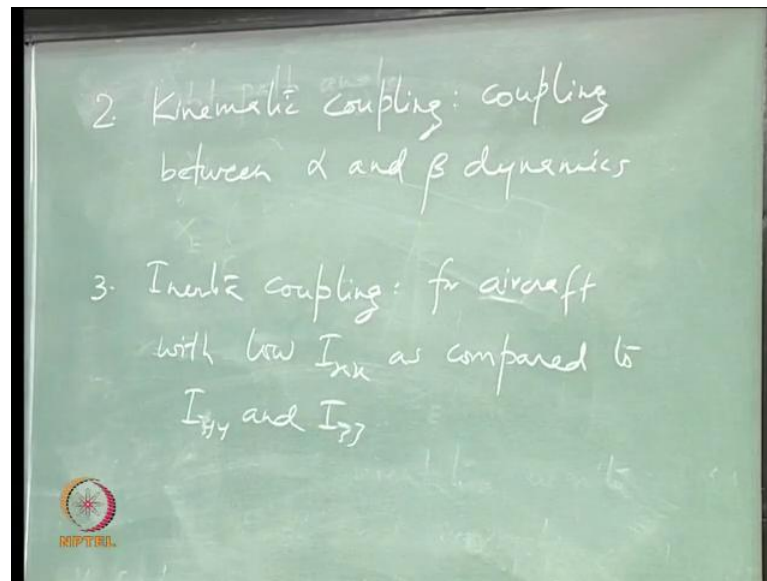 2. Kinematic coupling: coupling
between α and β dynamics
3. Inertia coupling: for aircraft
with low Ixx as compared to
Iyy and Izz
NPTEL